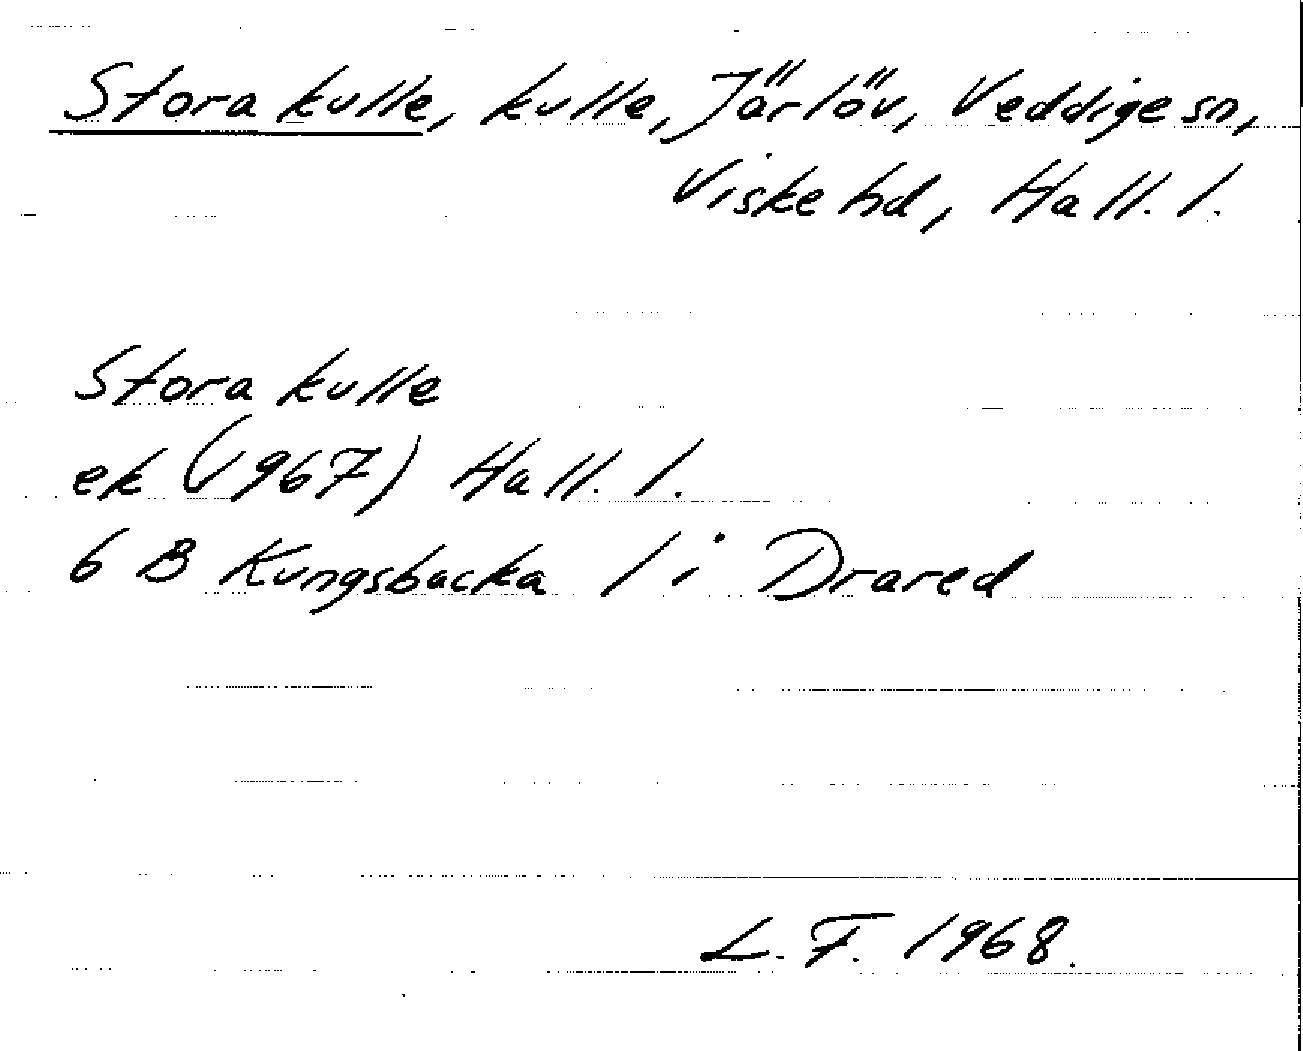 Stora kulle, kulle, Järlöv, Veddige sn,
Viske hd, Hall. l.
Stora kulle
ek (1967) Hall. l.
6 B Kungsbacka 1 i Drared
L. F. 1968.